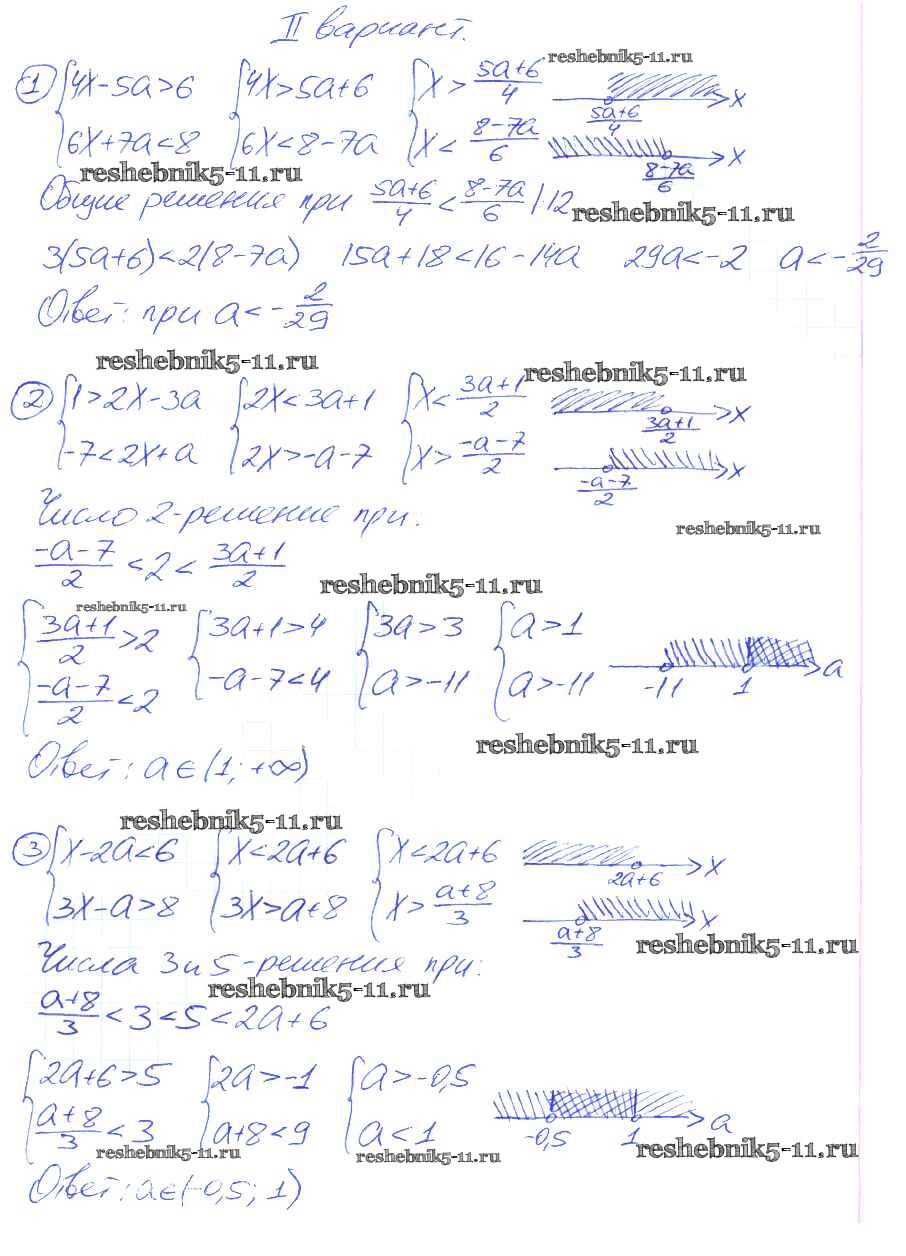 II вариант.
reshebnik5-11.ru
① { 4x-5a>6 { 4x>5a+6 { x> (5a+6)/4 x
{ 6x+7a<8 { 6x<8-7a { x< (8-7a)/6 (5a+6)/4 x
reshebnik5-11.ru (8-7a)/6
Общие решения при (5a+6)/4 < (8-7a)/6 |·12 reshebnik5-11.ru
3(5a+6)<2(8-7a) 15a+18<16-14a 29a<-2 a<-2/29
Ответ: при a<-2/29
reshebnik5-11.ru reshebnik5-11.ru
② { 1>2x-3a { 2x<3a+1 { x< (3a+1)/2 x
{ -7<2x+a { 2x>-a-7 { x> (-a-7)/2 (3a+1)/2 x
(-a-7)/2
Число 2-решение при:
reshebnik5-11.ru
(-a-7)/2 <2< (3a+1)/2
reshebnik5-11.ru
reshebnik5-11.ru
{ (3a+1)/2 >2 { 3a+1>4 { 3a>3 { a>1
{ (-a-7)/2 <2 { -a-7<4 { a>-11 { a>-11 -11 1 a
reshebnik5-11.ru
Ответ: a∈(1; +∞)
reshebnik5-11.ru
③ { x-2a<6 { x<2a+6 { x<2a+6 2a+6 x
{ 3x-a>8 { 3x>a+8 { x> (a+8)/3 (a+8)/3 x
reshebnik5-11.ru
Числа 3 и 5-решения при:
reshebnik5-11.ru
(a+8)/3 <3<5<2a+6
{ 2a+6>5 { 2a>-1 { a>-0,5
{ (a+8)/3 <3 { a+8<9 { a<1 -0,5 1 a
reshebnik5-11.ru reshebnik5-11.ru reshebnik5-11.ru
Ответ: a∈(-0,5; 1)